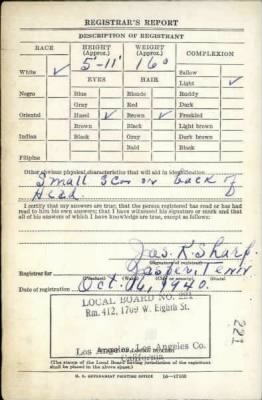 REGISTRAR'S REPORT
DESCRIPTION OF REGISTRANT
RACE
HEIGHT
(Approx.)
WEIGHT
(Approx.)
COMPLEXION
White ✓
5'-11"
160
Sallow
EYES
HAIR
Light ✓
Negro
Blue
Blonde
Ruddy
Gray
Red
Dark
Oriental
Hazel ✓
Brown ✓
Freckled
Brown
Black
Light brown
Indian
Black
Gray
Dark brown
Bald
Black
Filipino
Other obvious physical characteristics that will aid in identification
Small Scar on back of
Head.
I certify that my answers are true; that the person registered has read or has had
read to him his own answers; that I have witnessed his signature or mark and that
all of his answers of which I have knowledge are true, except as follows:
Jas. K. Sharp.
Registrar for
Jasper, Tenn.
(Precinct)
(Ward)
(City or county)
(State)
Date of registration
Oct. 16, 1940.
LOCAL BOARD NO. 221
Rm. 412, 1709 W. Eighth St.
221
Los Angeles, Los Angeles Co.
California
(The stamp of the Local Board having jurisdiction of the registrant
shall be placed in the above space.)
U. S. GOVERNMENT PRINTING OFFICE